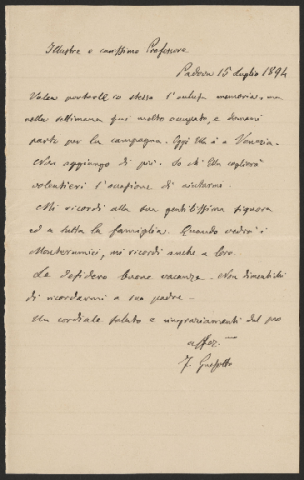 Illustre e carissimo Professore
Padova 15 Luglio 1894
Volea portarle io stesso l'entusa memoria, ma
nella settimana fui molto occupato, e domani
parto per la campagna. Oggi Ella è a Venezia.
Non aggiungo di più. So ch'Ella coglierà
volentieri l'occasione di aiutarmi.
Mi ricordi alla sua gentilissima signora
ed a tutta la famiglia. Quando vedrà i
mi ricordi anche a loro.
Le desidero buone vacanze. Non dimentichi
di ricordarmi a suo padre.
Un cordiale saluto e ringraziamenti dal suo
affez.mo